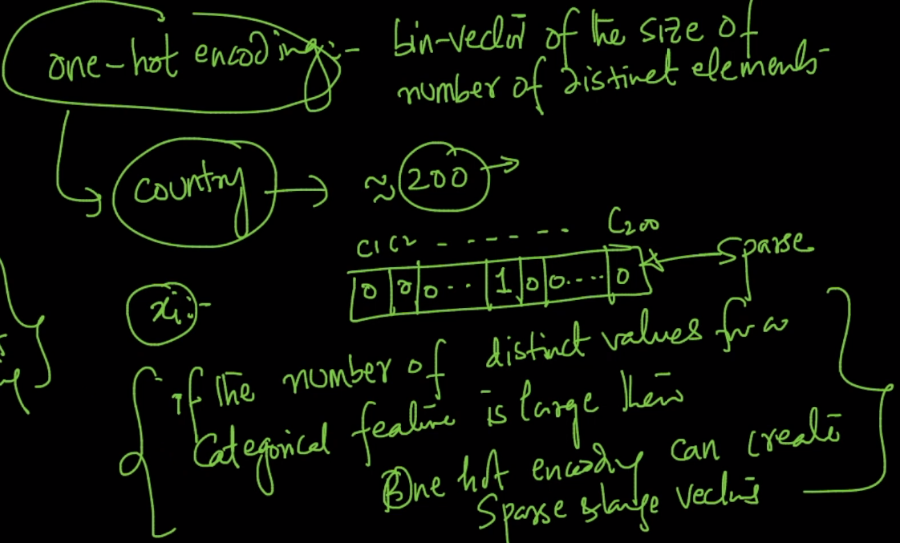 one-hot encoding :- bin-vector of the size of
number of distinct elements
country → ≈ 200 →
C1 C2 - - - - - - - C200
0 0 0 .. 1 0 0 .... 0 ← Sparse
xi :-
If the number of distinct values for a
Categorical feature is large then
One hot encody can create
Sparse & large vectors